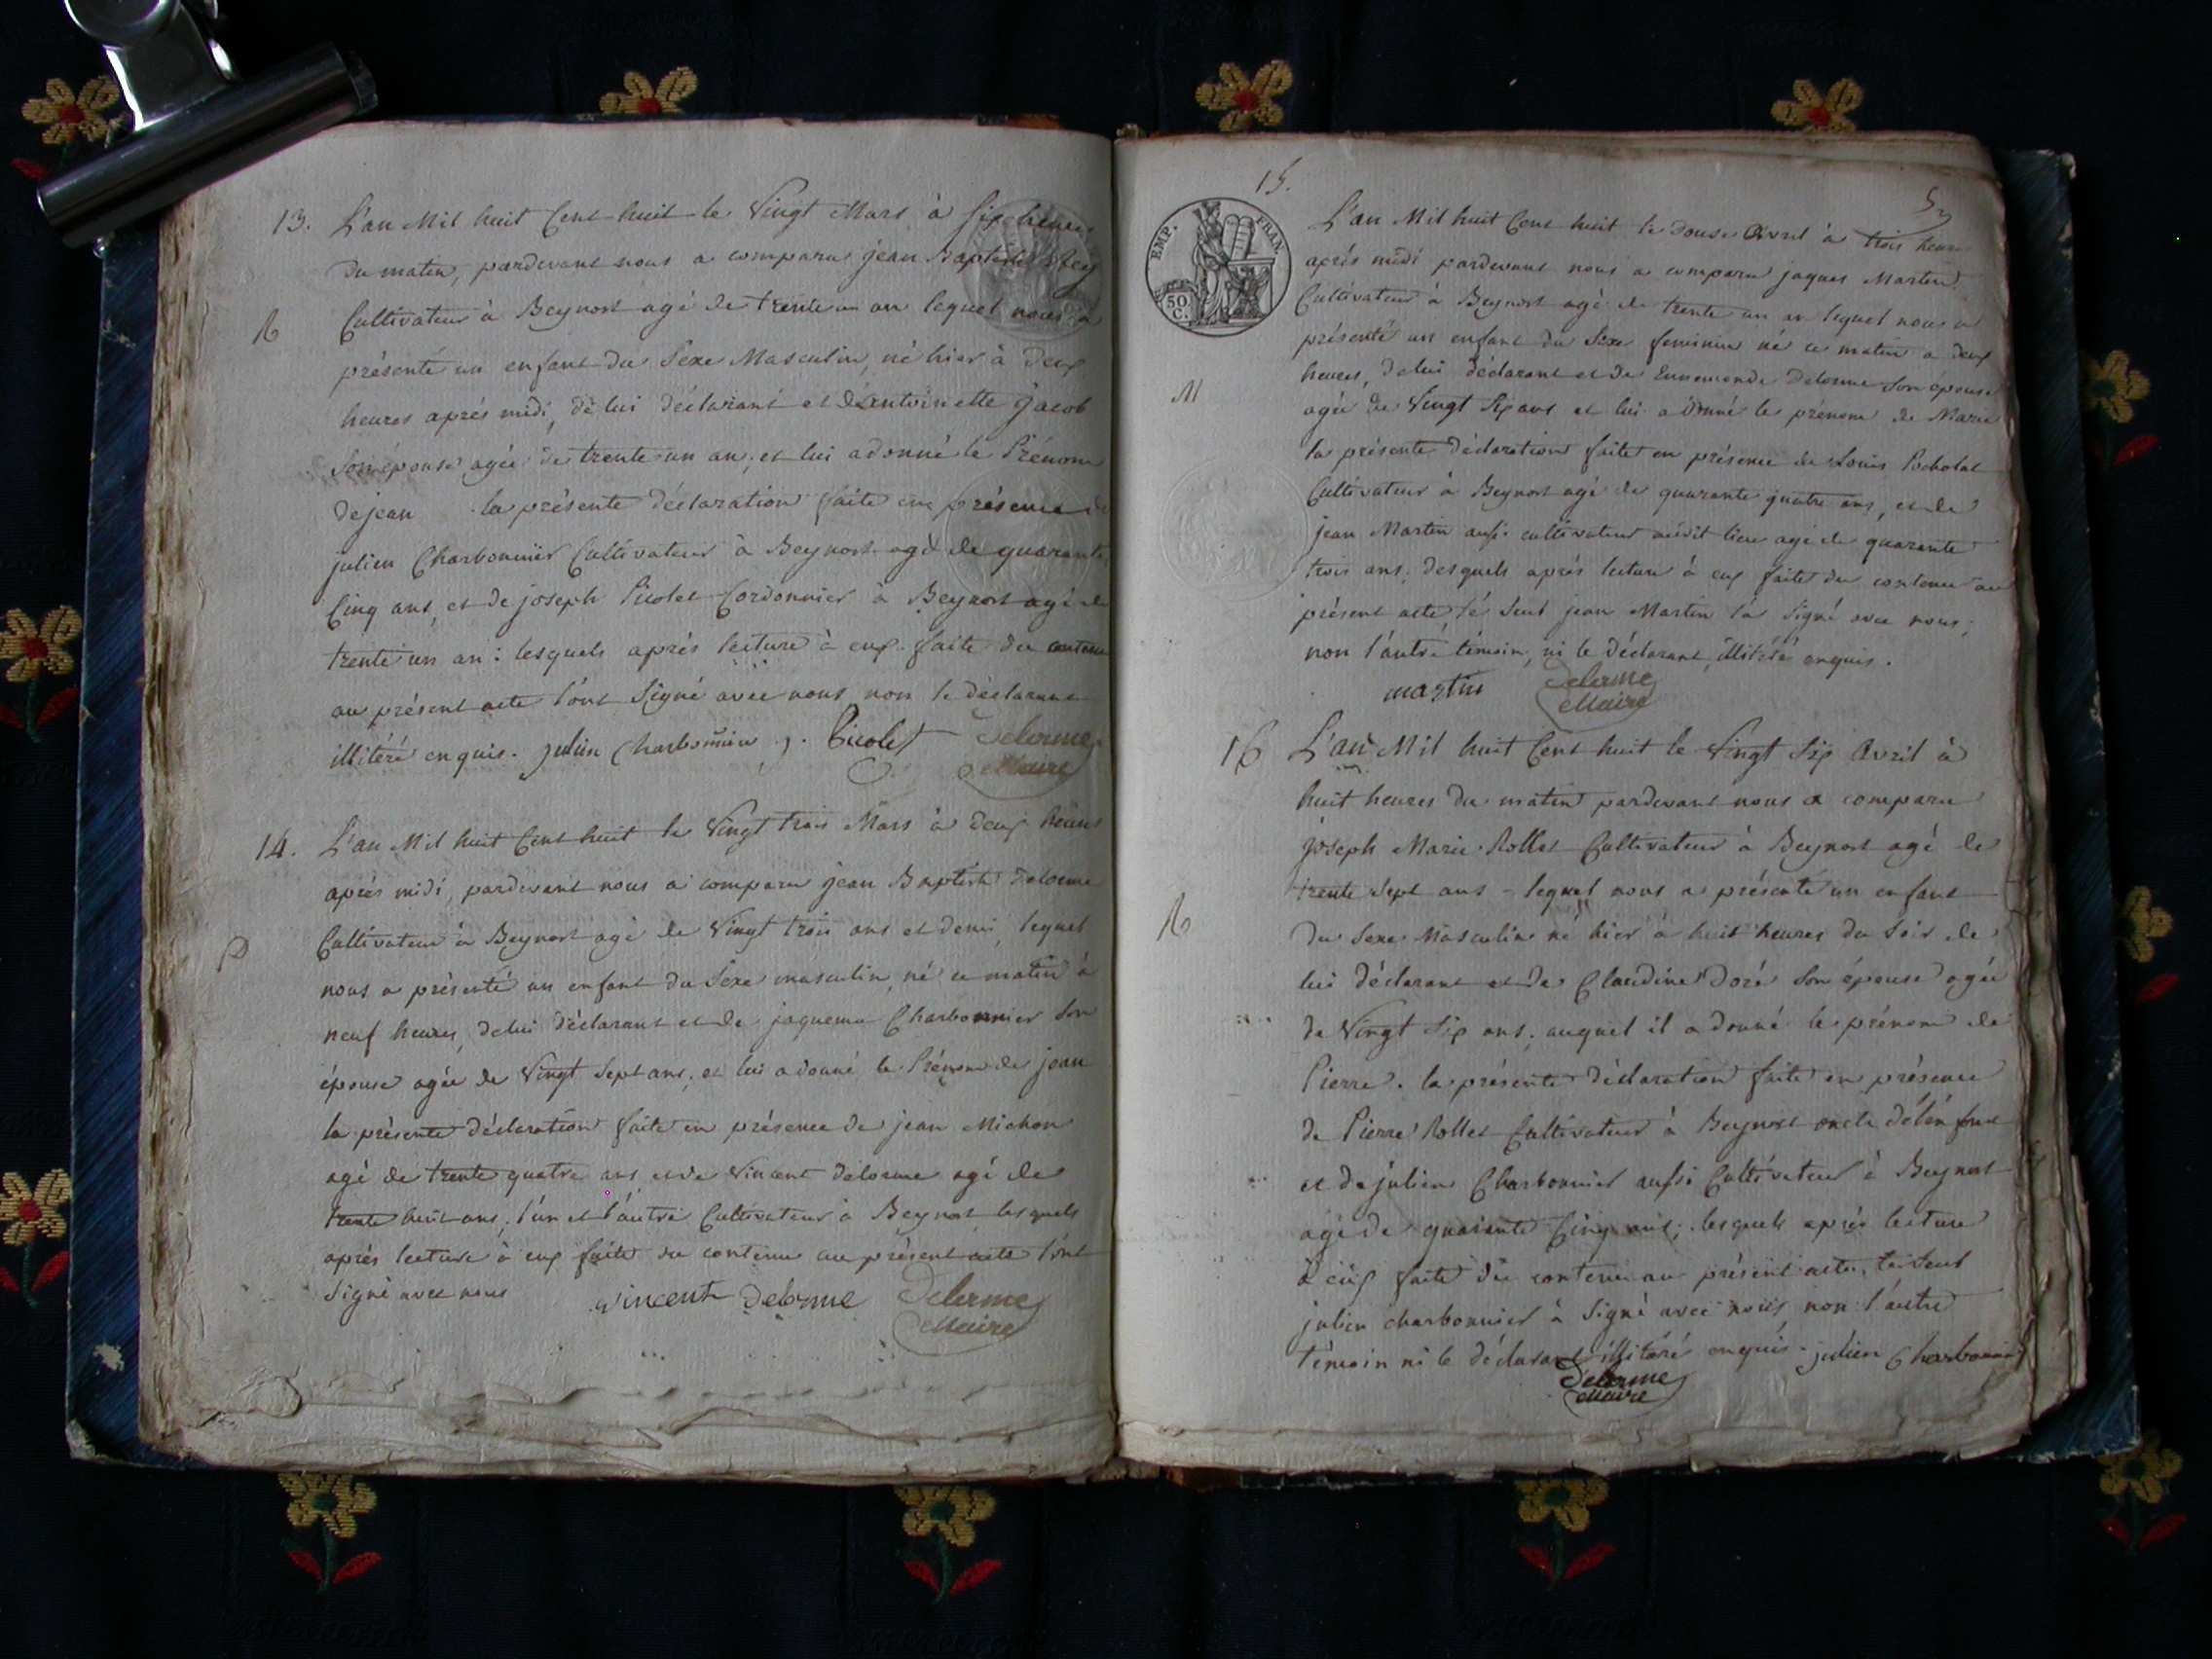 13. L'an Mil huit Cent huit le Vingt Mars à Six heures
du matin, pardevant nous a comparu jean Baptiste
R
Cultivateur à Beynost agé de trente un an lequel nous a
présenté un enfant du Sexe Masculin, né hier à deux
heures aprés midi, de lui déclarant et d'Antoinette Jacob
son épouse agée de trente un an, et lui a donné le Prénom
de jean la présente déclaration faite en présence de
julien Charbonnier Cultivateur à Beynost agé de quarante
Cinq ans, et de joseph Picolet Cordonnier à Beynost agé de
trente un an : lesquels aprés lecture à eux faite du contenu
au présent acte l'ont Signé avec nous non le déclarant
illitéré enquis. julien Charbonnier j. Picolet Delorme
Maire
14. L'an Mil huit Cent huit le Vingt trois Mars à deux heures
aprés midi, pardevant nous a comparu jean Baptiste Delorme
D
Cultivateur à Beynost agé de Vingt trois ans et demi, lequel
nous a présenté un enfant du Sexe masculin, né ce matin à
neuf heures, de lui déclarant et de jaquema Charbonnier Son
épouse agée de Vingt Sept ans, et lui a donné le Prénom de jean
la présente déclaration faite en présence de jean Michon
agé de trente quatre ans et de Vincent Delorme agé de
trente huit ans, l'un et l'autre Cultivateur à Beynost lesquels
aprés lecture à eux faite du contenu au présent acte l'ont
Signé avec nous vincent Delorme Delorme
Maire
15.
EMP. FRAN.
50
C.
L'an Mil huit Cent huit le douse Avril à trois heure
aprés midi pardevant nous a comparu jaques Martin
Cultivateur à Beynost agé de trente un an lequel nous a
présenté un enfant du Sexe feminin né ce matin a deux
heures, de lui déclarant et de Ennemonde Delorme Son épouse
M
agée de Vingt Six ans et lui a donné le prénom de Marie
la présente déclaration faite en présence de Louis
Cultivateur à Beynost agé de quarante quatre ans, et de
jean Martin aussi cultivateur audit lieu agé de quarante
trois ans, desquels aprés lecture à eux faite du contenu au
présent acte, le Seul jean Martin l'a Signé avec nous,
non l'autre témoin, ni le déclarant, illitéré enquis.
martin Delorme
Maire
16 L'an Mil huit Cent huit le Vingt Six Avril à
huit heures du matin pardevant nous a comparu
joseph Marie Rollet Cultivateur à Beynost agé de
trente Sept ans - lequel nous a présenté un enfant
R
du Sexe Masculin né hier à huit heures du Soir de
lui déclarant et de Claudine Doré Son épouse agée
de Vingt Six ans, auquel il a donné le prénom de
Pierre. la présente déclaration faite en présence
de Pierre Rollet Cultivateur à Beynost oncle de l'enfant
et de julien Charbonnier aussi Cultivateur à Beynost
agé de quarante Cinq ans; lesquels aprés lecture
à eux faite du contenu au présent acte, le Seul
julien charbonnier à Signé avec nous, non l'autre
témoin ni le déclarant illitéré enquis. julien Charbonnier
Delorme
Maire